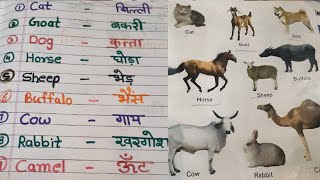 ① Cat - बिल्ली
② Goat - बकरी
③ Dog - कुत्ता
④ Horse - घोड़ा
⑤ Sheep - भेड़
⑥ Buffalo - भैंस
Cow - गाय
Rabbit - खरगोश
Camel - ऊँट
Cat
Goat
Dog
Horse
Sheep
Buffalo
Cow
Rabbit